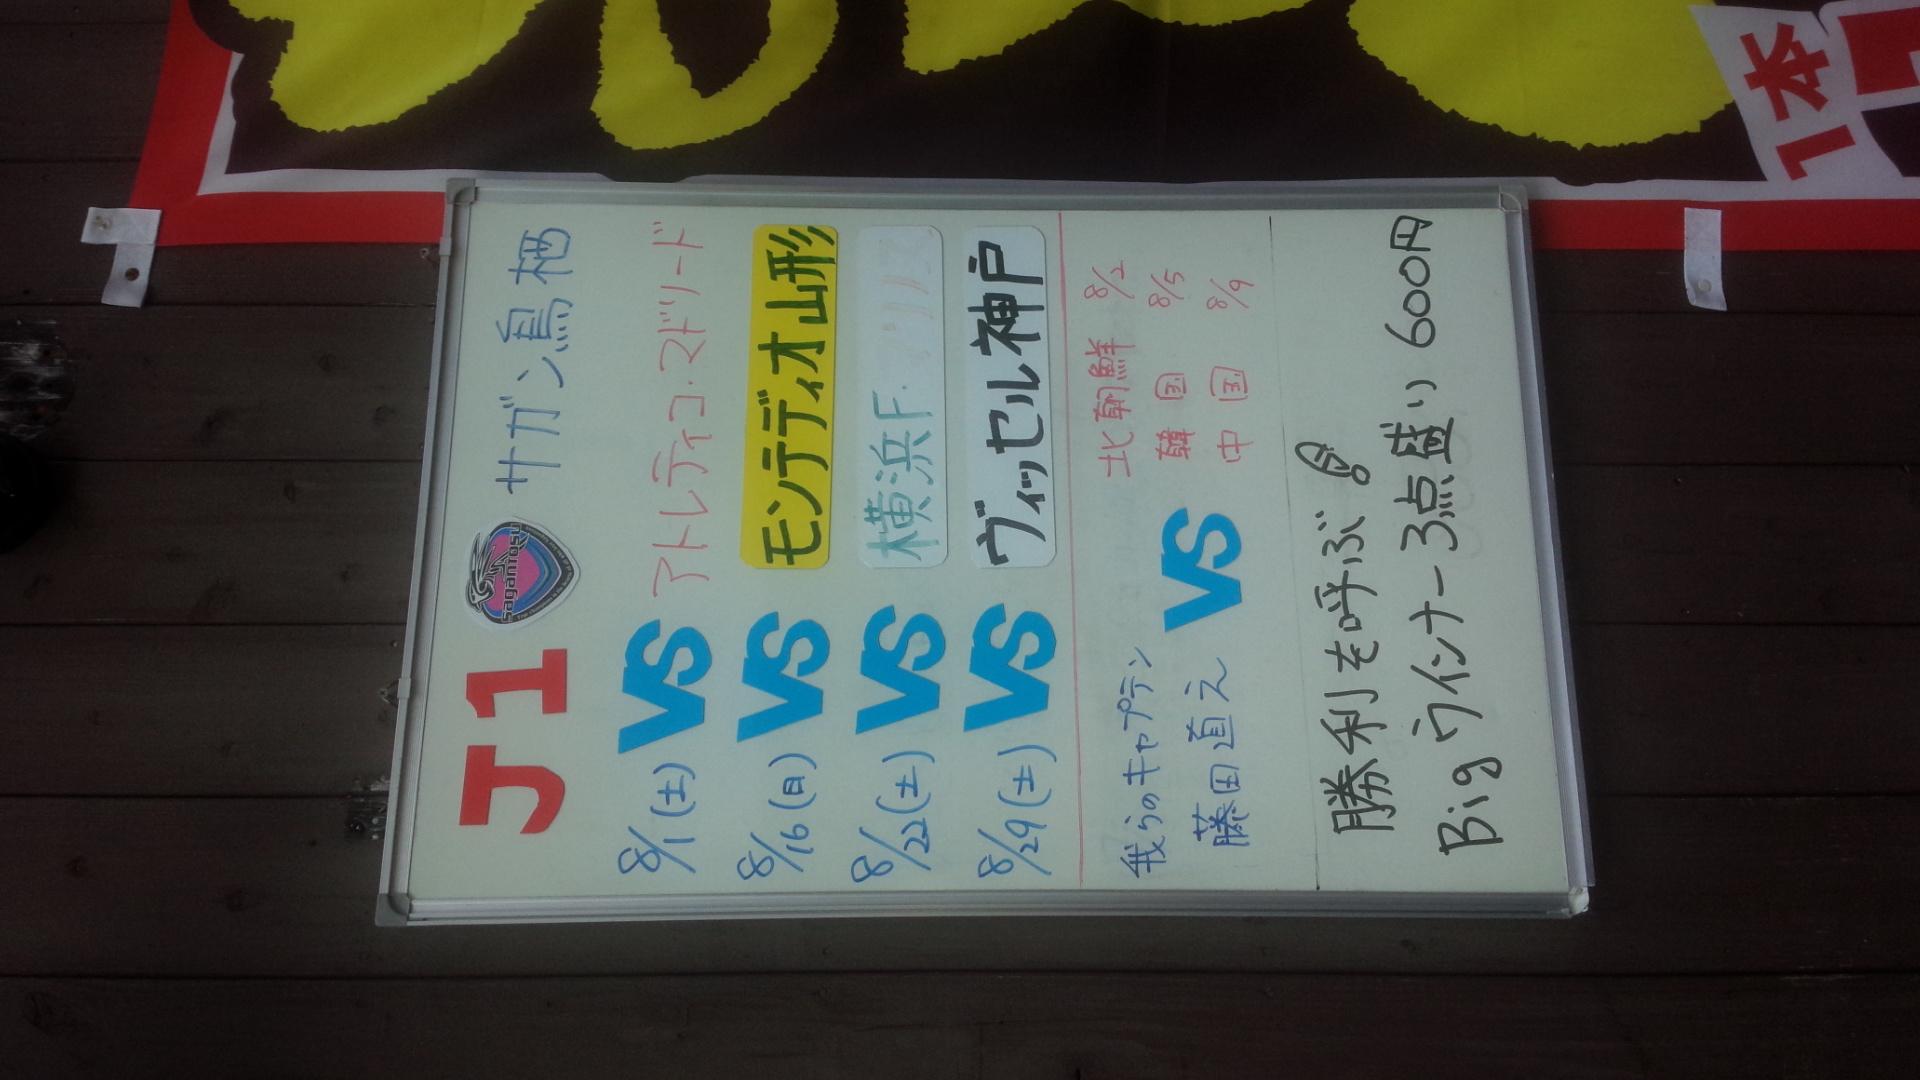 1本
J1 sagantosu サガン鳥栖
8/1(土) VS アトレティコ・マドリード
8/16(日) VS モンテディオ山形
8/22(土) VS 横浜F.マリノス
8/29(土) VS ヴィッセル神戸
我らのキャプテン
藤田直え
VS
北朝鮮 8/2
韓国 8/5
中国 8/9
勝利を呼ぶ
Bigウインナー3点盛り 600円